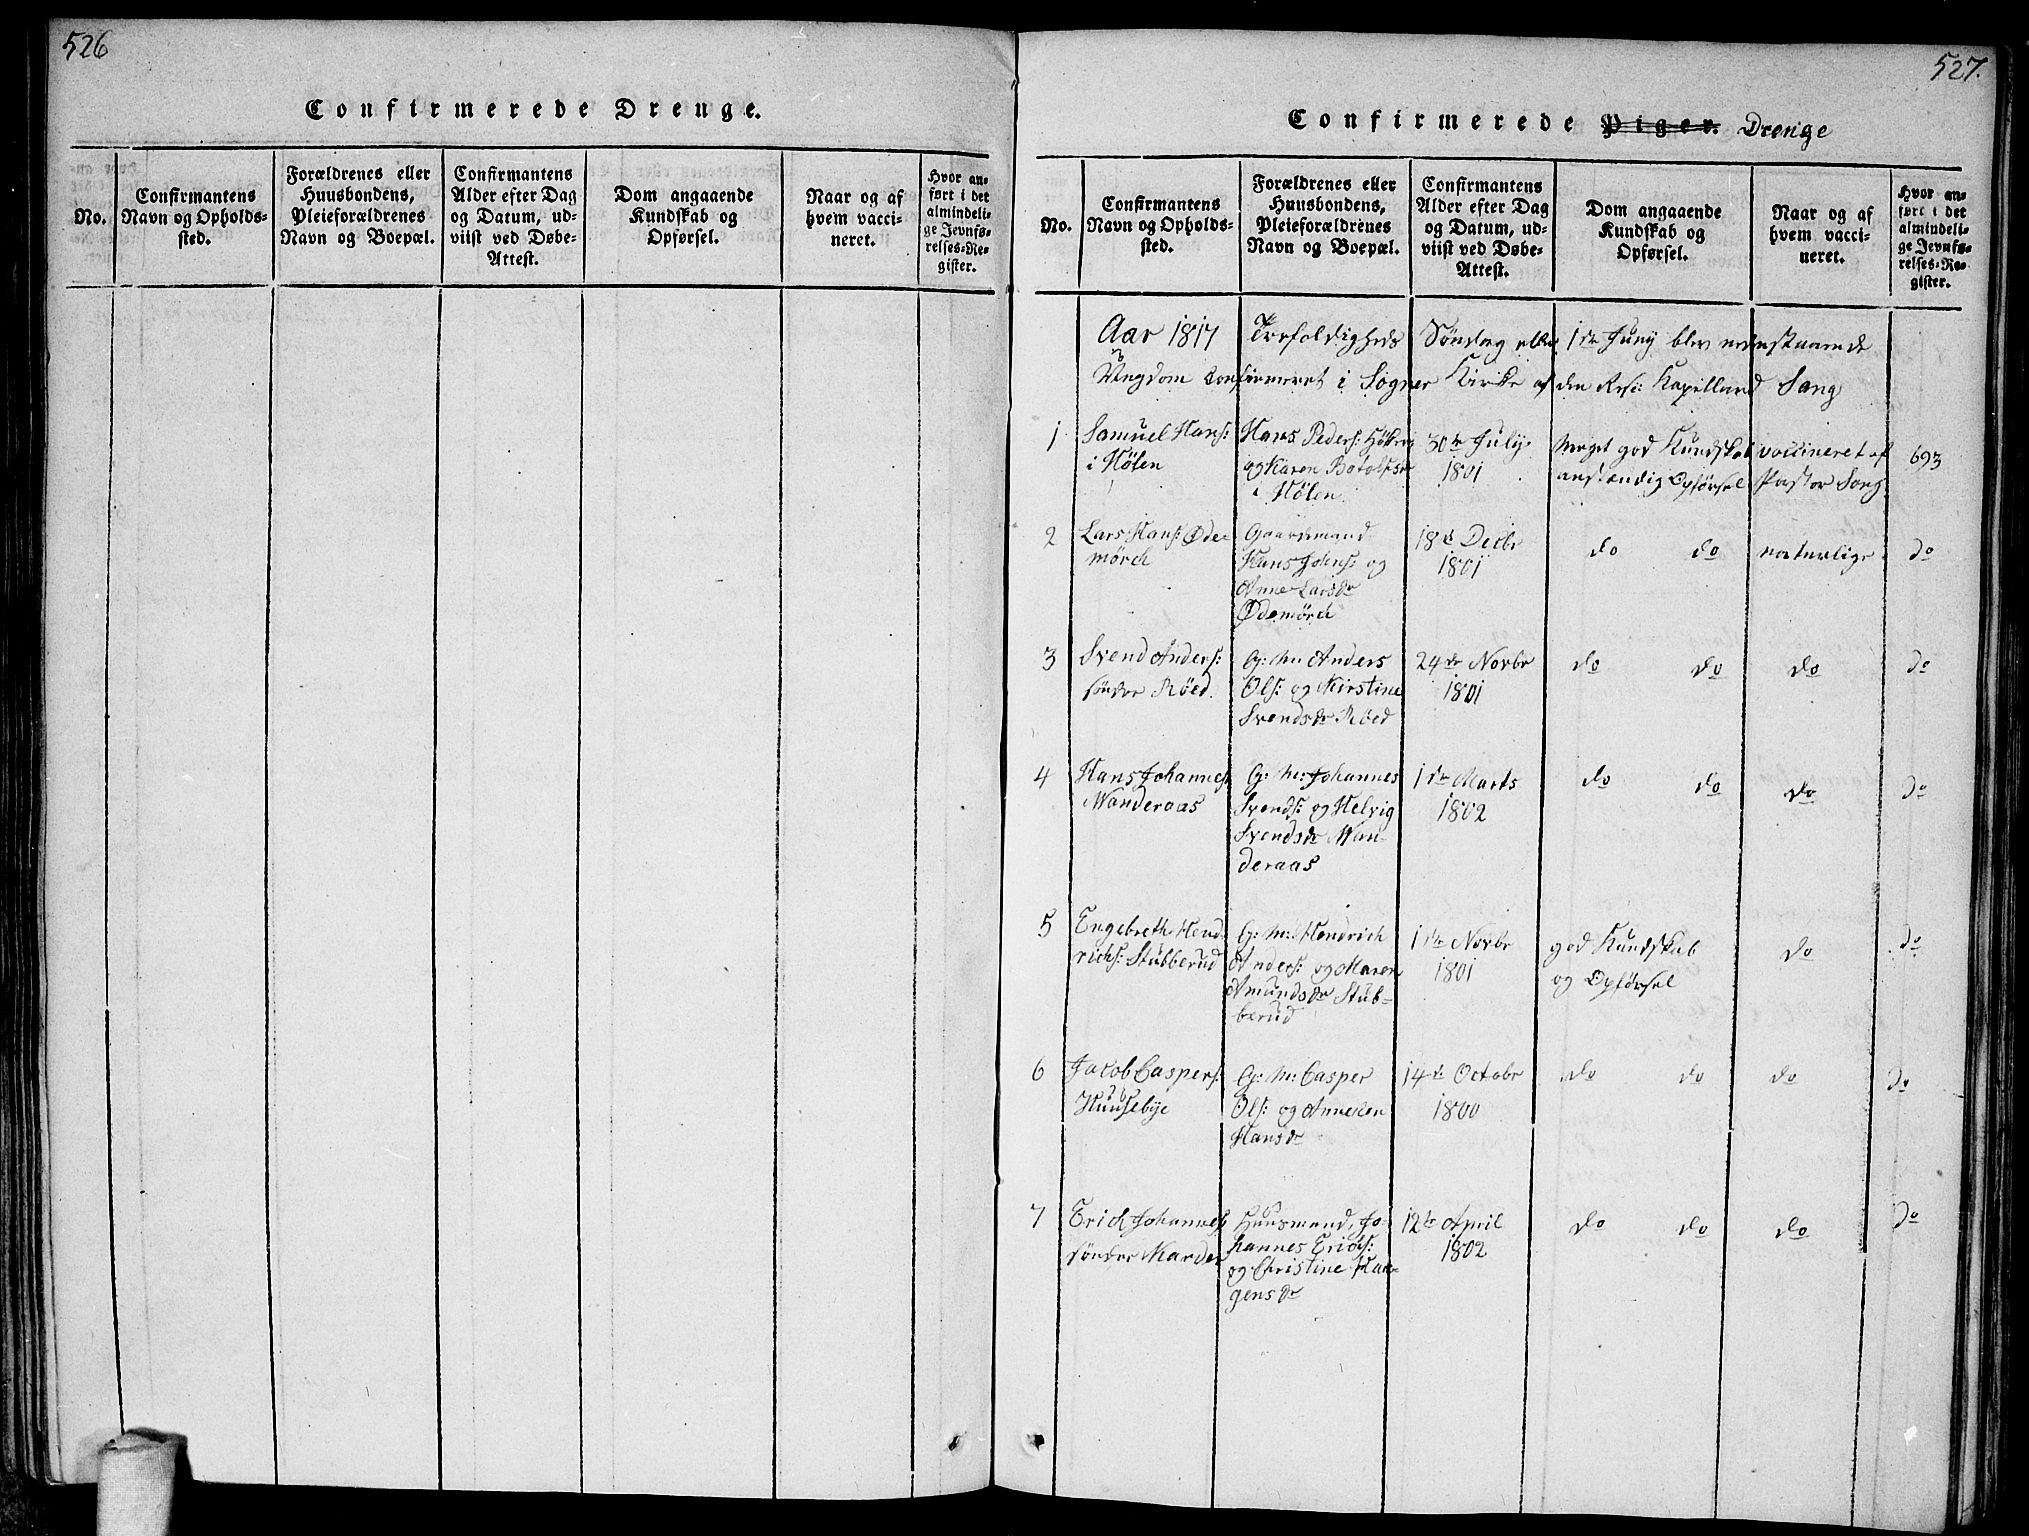 526
Confirmerede Drenge.
No.
Confirmantens
Navn og Opholds-
sted.
Forældrenes eller
Huusbondens,
Pleieforældrenes
Navn og Boepæl.
Confirmantens
Alder efter Dag
og Datum, ud-
viist ved Døbe-
Attest.
Dom angaaende
Kundskab og
Opførsel.
Naar og af
hvem vacci-
neret.
Hvor an-
ført i det
almindeli-
ge Jevnfø-
relses-Re-
gister.
527.
Confirmerede Piger. Drenge
No.
Confirmantens
Navn og Opholds-
sted.
Forældrenes eller
Huusbondens,
Pleieforældrenes
Navn og Boepæl.
Confirmantens
Alder efter Dag
og Datum, ud-
viist ved Døbe-
Attest.
Dom angaaende
Kundskab og
Opførsel.
Naar og af
hvem vacci-
neret.
Hvor an-
ført i det
almindeli-
ge Jevnfø-
relses-Re-
gister.
Aar 1817 Trefoldigheds Søndag eller 1de Juny blev nedenstaaende
Ungdom confirmeret i Sogner Kirke af den Resi: Kapelland Sang
1
Samuel Hans:
i Hølen
Hans Peders:
og Karen Botolfsdr
i Hølen
30te July
1801
Meget god Kundskab
anstændig Opførsel
vaccineret af
Pastor Sang
693
2
Lars Hans: Øde-
mörch
Gaardmand
Hans Johns: og
Anne Larsdr
Ødemörch
18de Decbr
1801
do do
naturlige
do
3
Svend Anders:
søndre Röed
G: M: Anders
Ols: og Kirstine
Svendsdr Röed
24de Novbr
1801
do do
do
do
4
Hans Johannes:
Wanderaas
G: M: Johannes
Svends: og Helvig
Svendsdr Wan-
deraas
1de Marts
1802
do do
do
do
5
Engebreth Hend-
richs: Stubberud
G: M: Hendrich
Anders: og Maren
Amundsdr Stub-
berud
1de Novbr
1801
god Kundskab
og Opførsel
do
do
6
Jacob Caspers:
Huusebye
G: M: Casper
Ols: og Anneken
Hansdr
14de Octobr
1800
do do
do
do
7
Erich Johannes:
søndre Mardex
Huusmand, Jo-
hannes Erichs:
og Christine Haa-
gensdr
12te April
1802
do do
do
do